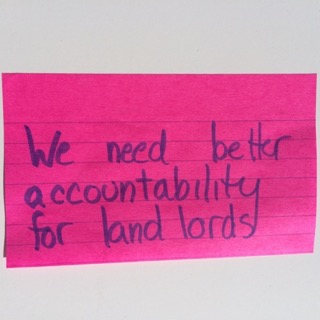 We need better
accountability
for land lords